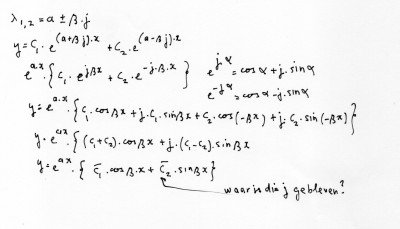 λ₁,₂ = a ± β.j
y = C₁ . e^(a+βj).x + C₂ . e^(a-βj).x
e^a.x . { C₁ . e^jβx + C₂ . e^-j.β.x } e^j.α = cos α + j. sin α
e^-jα = cos α - j. sin α
y = e^a.x . { C₁ . cos βx + j. C₁ . sin βx + C₂ . cos(-βx) + j. C₂ . sin(-βx) }
y = e^ax . { (C₁+C₂) . cos βx + j. (C₁-C₂) . sin βx
y = e^ax . { C̄₁ . cos β.x + C̄₂ . sin βx }
waar is die j gebleven?